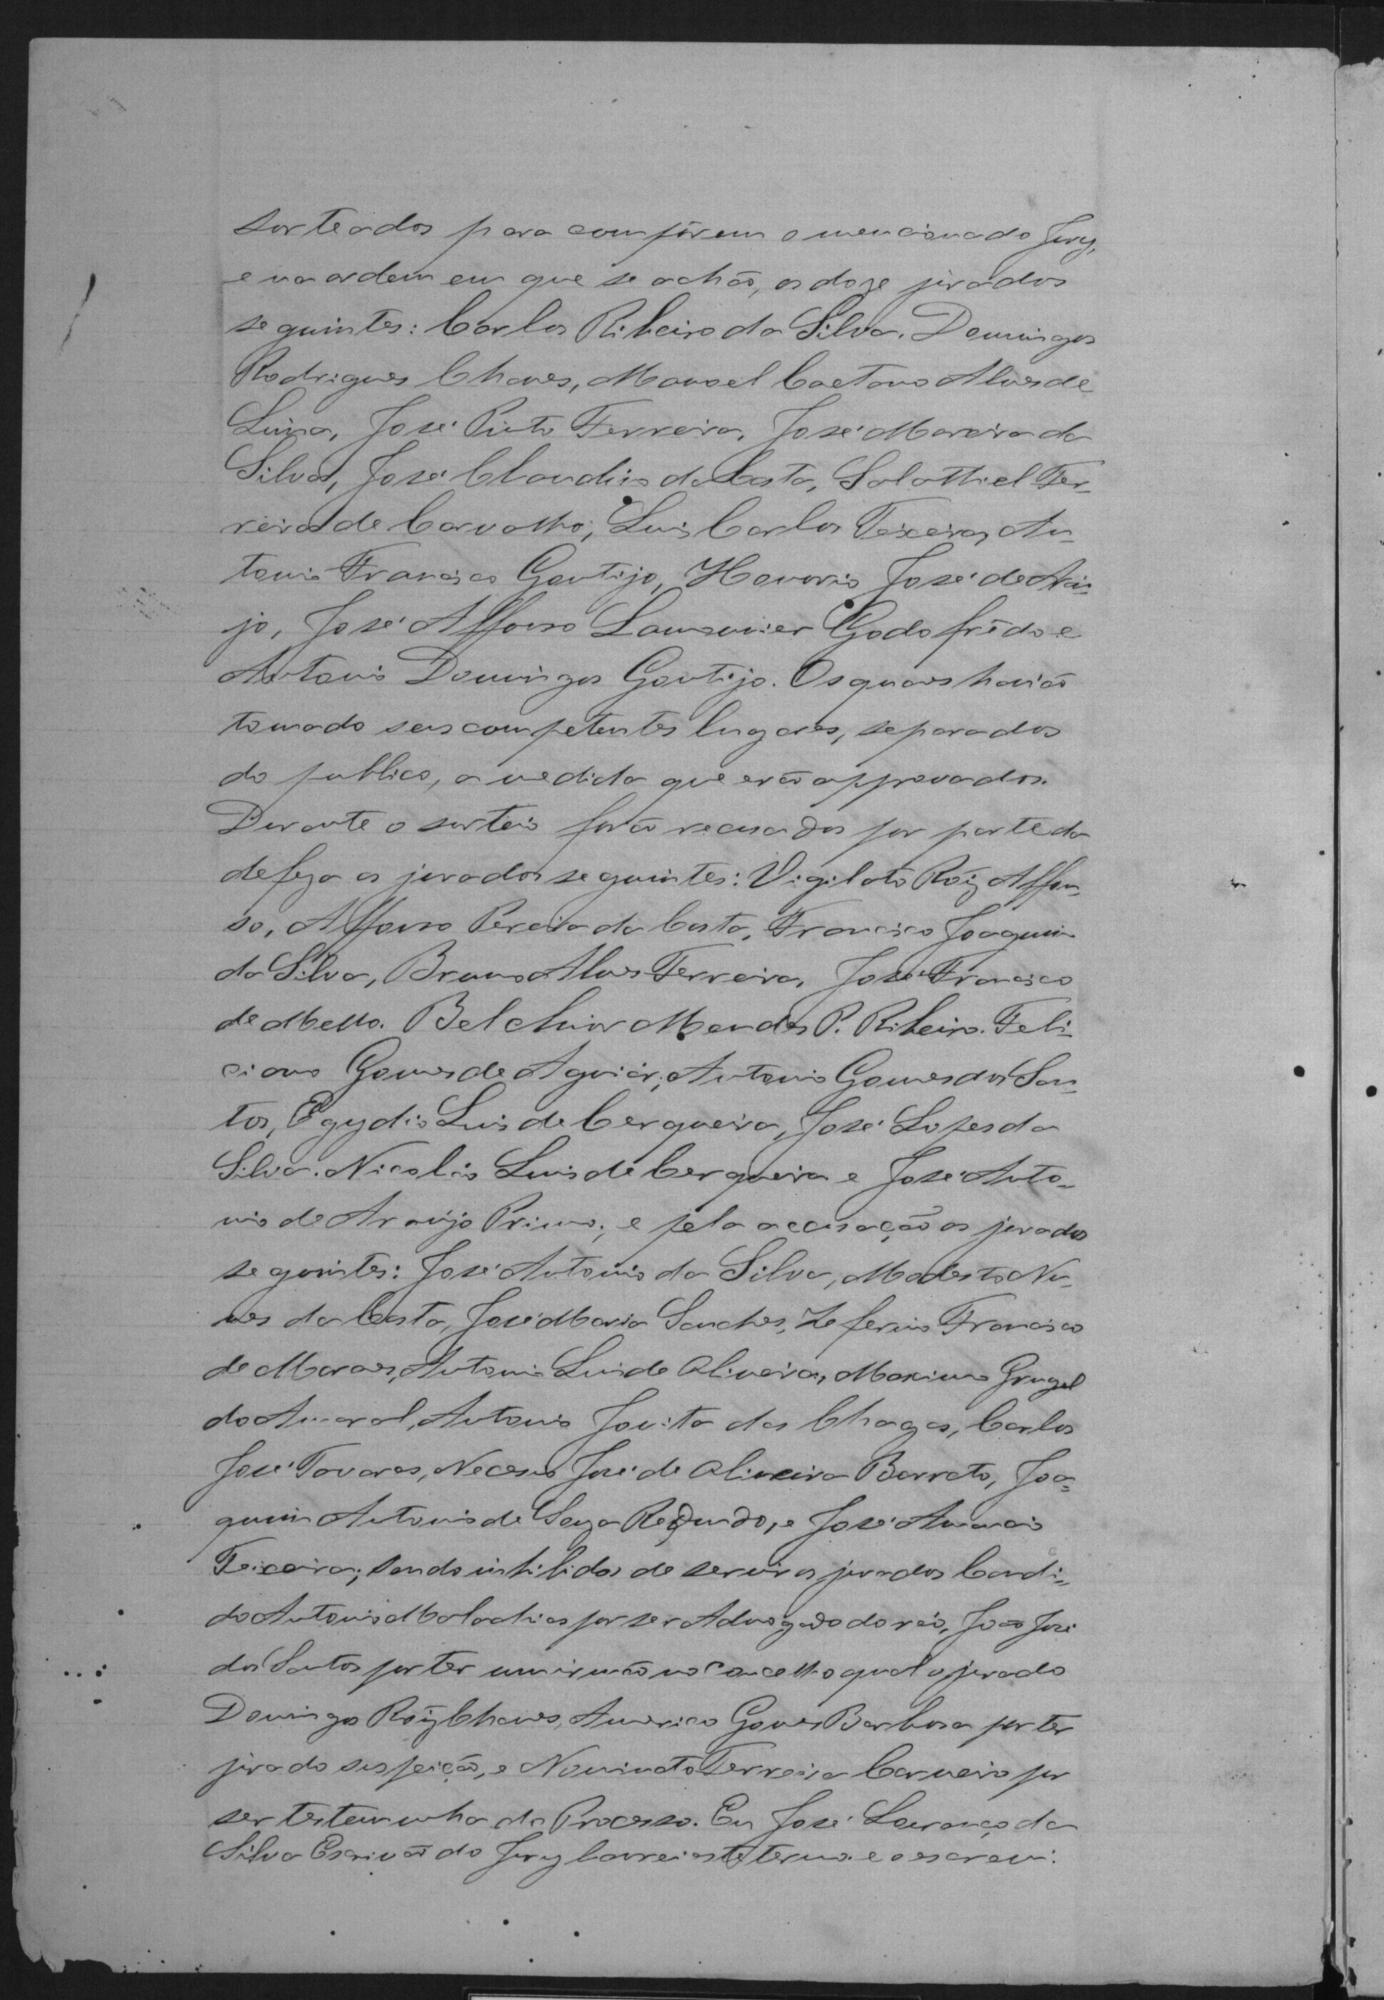 sorteados para compôrem o mencionado Jury,
e na ordem em que se achão, os doze jurados
seguintes: Carlos Ribeiro da Silva. Domingos
Rodrigues Chaves, Manoel Caetano Alves de
Lima, José Pinto Ferreira, José Moreira da
Silva, José Claudio da Costa, Salathiel Fer-
reira de Carvalho, Luis Carlos Teixeira, An-
tonio Francisco Gontijo, Honorio José de Arau-
jo, José Affonso Lamounier Godofrêdo e
Antonio Domingos Gontijo. Os quaes havião
tomado seus competentes lugares, separados
do publico, a medida que erão approvados.
Durante o sorteio forão recusados por parte da
defeza os jurados seguintes: Vigilato Roiz Affon-
so, Affonso Pereira da Costa, Francisco Joaquim
da Silva, Bruno Alves Ferreira, José Francisco
de Mello. Belchior Mendes P. Ribeiro. Feli-
ciano Gomes de Aguiar, Antonio Gomes dos San-
tos, Egydio Luis de Cerqueira, José Lopes da
Silva. Nicoláo Luis de Cerqueira e José Anto-
nio de Araújo Primo; e pela accusação os jurados
seguintes: José Antonio da Silva, Modesto Nu-
nes da Costa, José Maria Sanches, Zeferino Francisco
de Moraes, Antonio Luis de Oliveira, Maximo Grugel
do Amaral, Antonio Jovita das Chagas, Carlos
José Tavares, Necesio José de Oliveira Barreto, Joa-
quim Antonio de Souza Redundo, e José Ananias
Teixeira; sendo inhibidos de servir os jurados Candi-
do Antonio Malachias por ser Advogado do réo, João José
dos Santos por ter um irmão no Concelho qual o jurado
Domingos Roiz Chaves, Americo Gomes Barbosa por ter
jurado suspeição, e Nominato Ferreira Carneiro por
ser testemunha do Processo. Eu José Lourenço da
Silva Escrivão do Jury lavrei este termo e o escrevi.